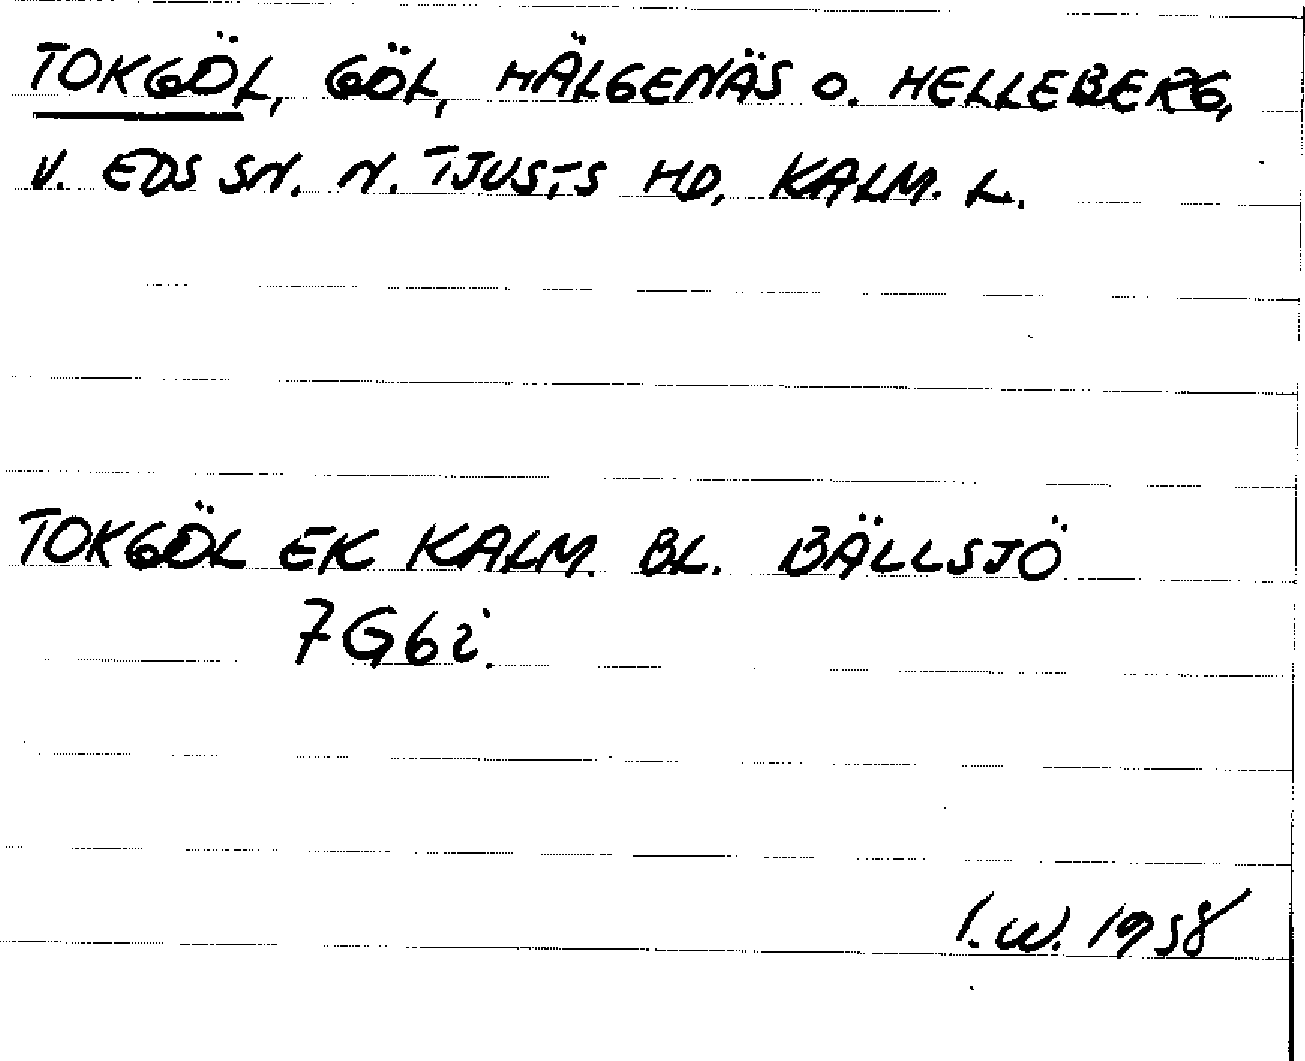 TOKGÖL, GÖL, HÄLGENÄS O. HELLEBERG,
V. EDS SN. N. TJUSTS HD, KALM. L.
TOKGÖL EK KALM. BL. BÄLLSJÖ
7G6i.
I.W. 1958